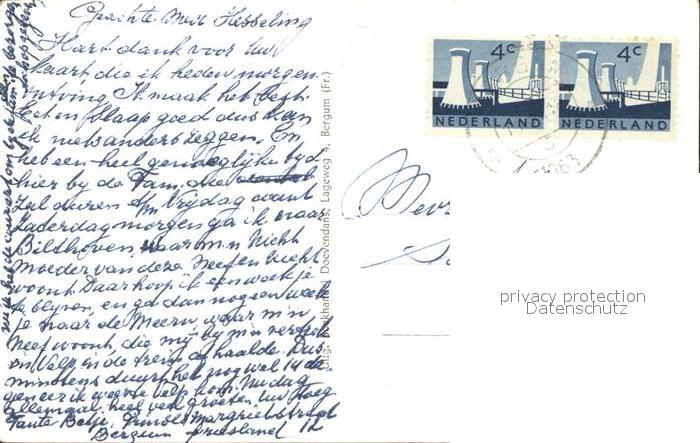 Geachte Mevr Hesseling
Hart. dank voor Uw
kaart die ik heden morgen
ontving Ik maak het best
Eet en slaap goed dus kan
ik niets anders zeggen. En
heb een heel genoeglijke tijd
hier by de Fam. die
zal duren t/m Vrijdag avond
Zaterdag morgen ga ik naar
Bilthoven, waar m'n Nicht
Moeder van deze Neef en Nicht
woont Daar hoop ik een weekje
te blyven, en ga dan nog een week
je naar de Meern waar m'n
Neef woont, die my by m'n vertrek
in Velp, in de trein afhaalde. Dus
minstens duurt het nog wel 14 da
gen eer ik weer te Velp kom. Nu dag
allemaal, heel veel groeten Uw
Tante Betje. Prinses Margrietstraat
Bergum Friesland 12
Uitg. Boekhandel Doevendans, Lageweg 4, Bergum (Fr.)
4c 4c
NEDERLAND NEDERLAND
1963
Mevr
privacy protection
Datenschutz